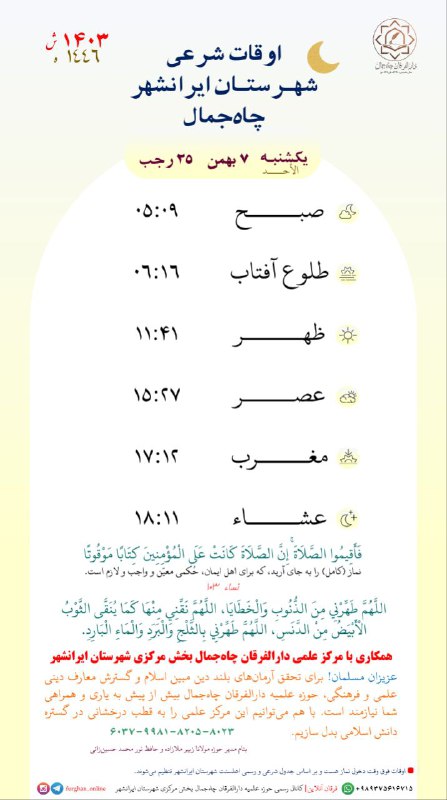 ۱۴۰۳ ش
۱۴۴۶ ه
دارالفرقان چاه‌جمال
اوقات شرعی
شهرستان ایرانشهر
چاه‌جمال
یکشنبه ۷ بهمن ۲۵ رجب
الأحد
صبح ۰۵:۰۹
طلوع آفتاب ۰۶:۱۶
ظهر ۱۱:۴۱
عصر ۱۵:۲۷
مغرب ۱۷:۱۲
عشاء ۱۸:۱۱
فَأَقِيمُوا الصَّلَاةَ ۚ إِنَّ الصَّلَاةَ كَانَتْ عَلَى الْمُؤْمِنِينَ كِتَابًا مَوْقُوتًا
نماز (کامل) را به جای آرید، که برای اهل ایمان، حُکمی معیّن و واجب و لازم است.
اللَّهُمَّ طَهِّرْنِي مِنَ الذُّنُوبِ وَالْخَطَايَا، اللَّهُمَّ نَقِّنِي مِنْهَا كَمَا يُنَقَّى الثَّوْبُ
الْأَبْيَضُ مِنَ الدَّنَسِ، اللَّهُمَّ طَهِّرْنِي بِالثَّلْجِ وَالْبَرَدِ وَالْمَاءِ الْبَارِدِ.
همکاری با مرکز علمی دارالفرقان چاه‌جمال بخش مرکزی شهرستان ایرانشهر
عزیزان مسلمان! برای تحقق آرمان‌های بلند دین مبین اسلام و گسترش معارف دینی
علمی و فرهنگی، حوزه علمیه دارالفرقان چاه‌جمال بیش از پیش به یاری و همراهی
شما نیازمند است. با هم می‌توانیم این مرکز علمی را به قطب درخشانی در گستره
دانش اسلامی بدل سازیم. ۶۰۳۷-۹۹۸۱-۸۲۰۵-۸۰۲۳
بنام مدیر حوزه مولانا زبیر ملازاده و حافظ نور محمد حسین‌زائی
اوقات فوق وقت دخول نماز هست و بر اساس جدول شرعی و رسمی اهلسنت شهرستان ایرانشهر تنظیم می‌شوند.
۰۹۸۹۳۷۵۶۱۶۷۱۵ فرقان آنلاین | کانال رسمی حوزه علمیه دارالفرقان چاه‌جمال بخش مرکزی شهرستان ایرانشهر furghan_online